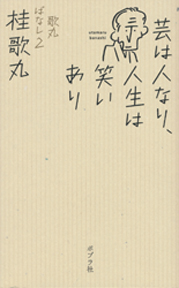 芸は人なり、
人生は
笑い
あり
utamaru
banashi
歌丸
ばなし2
桂歌丸
ポプラ社